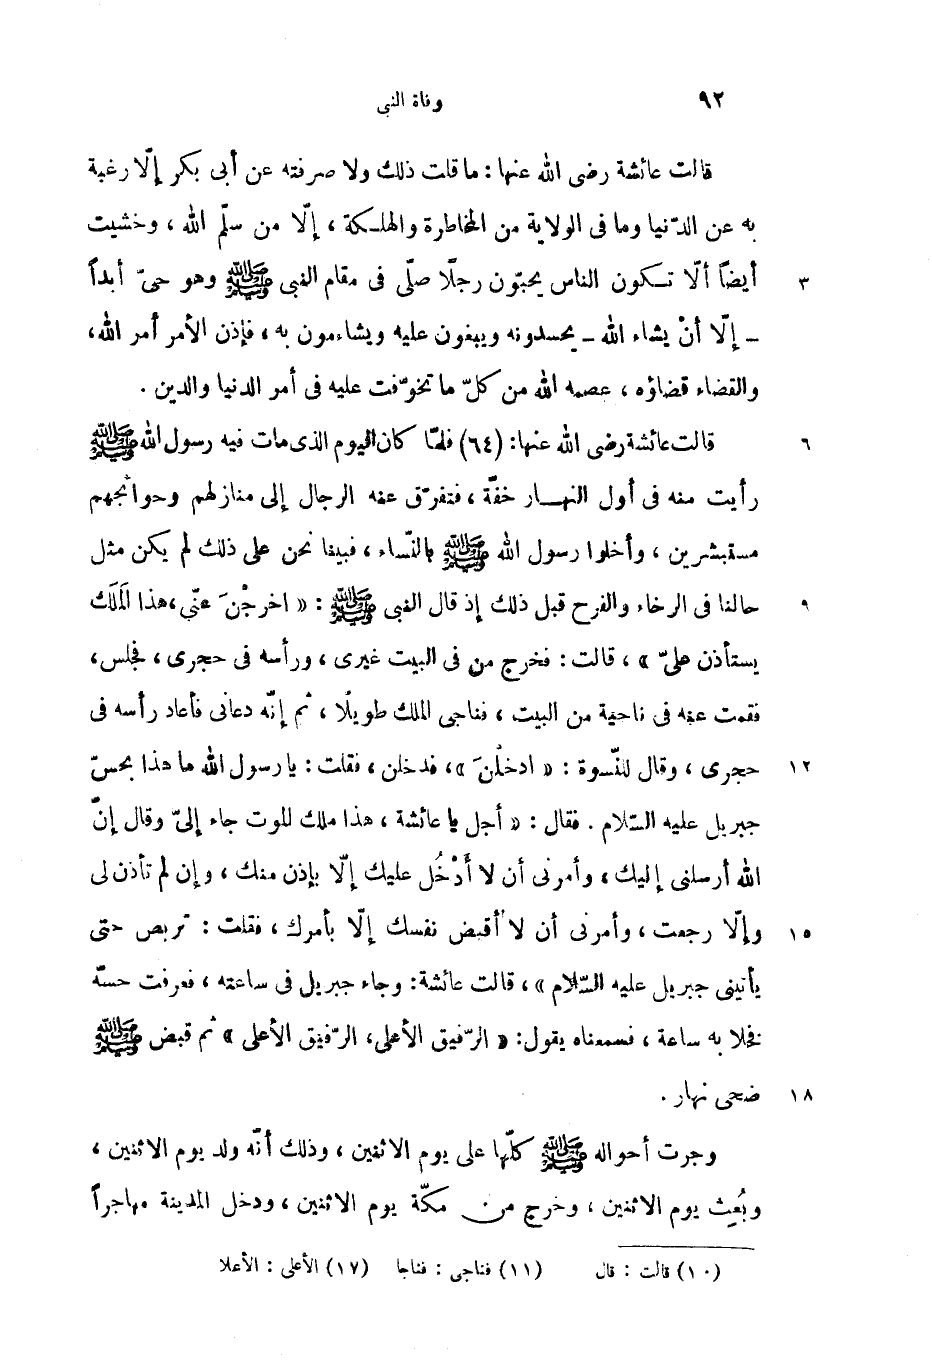 ٩٢ وفاة النبى
قالت عائشة رضى الله عنها : ما قلت ذلك ولا صرفته عن أبى بكر إلّا رغبة
به عن الدّنيا وما فى الولاية من المخاطرة والهلكة ، إلّا من سلّم الله ، وخشيت
٣ أيضاً ألّا تكون الناس يحبّون رجلًا صلّى فى مقام النبى ﷺ وهو حىّ أبداً
ـ إلّا أنْ يشاء الله ـ يحسدونه ويبغون عليه ويشاءمون به ، فإذن الأمر أمر الله،
والقضاء قضاؤه ، عصمه الله من كلّ ما تخوّفت عليه فى أمر الدنيا والدين .
٦ قالت عائشة رضى الله عنها: (٦٤) فلمّا كان اليوم الذى مات فيه رسول الله ﷺ
رأيت منه فى أول النهار خفّة ، فتفرّق عنه الرجال إلى منازلهم وحوائجهم
مستبشرين ، وأخلوا رسول الله ﷺ بالنّساء ، فبينا نحن على ذلك لم يكن مثل
٩ حالنا فى الرخاء والفرح قبل ذلك إذ قال النبى ﷺ : « اخرجْنَ عنّى، هذا المَلَك
يستأذن علىّ » ، قالت : فخرج من فى البيت غيرى ، ورأسه فى حجرى ، فجلس،
فقمت عنه فى ناحية من البيت ، فناجى الملك طويلًا ، ثم إنّه دعانى فأعاد رأسه فى
١٢ حجرى ، وقال للنّسوة : « ادخلْنَ »، فدخلن ، فقلت : يا رسول الله ما هذا بحسّ
جبريل عليه السّلام . فقال : « أجل يا عائشة ، هذا ملك الموت جاء إلىّ وقال إنّ
الله أرسلنى إليك ، وأمرنى أن لا أَدْخُل عليك إلّا بإذن منك ، وإن لم تأذن لى
١٥ وإلّا رجعت ، وأمرنى أن لا أقبض نفسك إلّا بأمرك ، فقلت : تربص حتى
يأتينى جبريل عليه السّلام » ، قالت عائشة: وجاء جبريل فى ساعته ، فعرفت حسّه
فخلا به ساعة ، فسمعناه يقول: « الرّفيق الأعلى، الرّفيق الأعلى » ثم قبض ﷺ
١٨ ضحى نهار .
وجرت أحواله ﷺ كلّها على يوم الاثنين ، وذلك أنّه ولد يوم الاثنين ،
وبُعِث يوم الاثنين ، وخرج من مكّة يوم الاثنين ، ودخل المدينة مهاجراً
(١٠) قالت : قال (١١) فناجى : فناجا (١٧) الأعلى : الأعلا